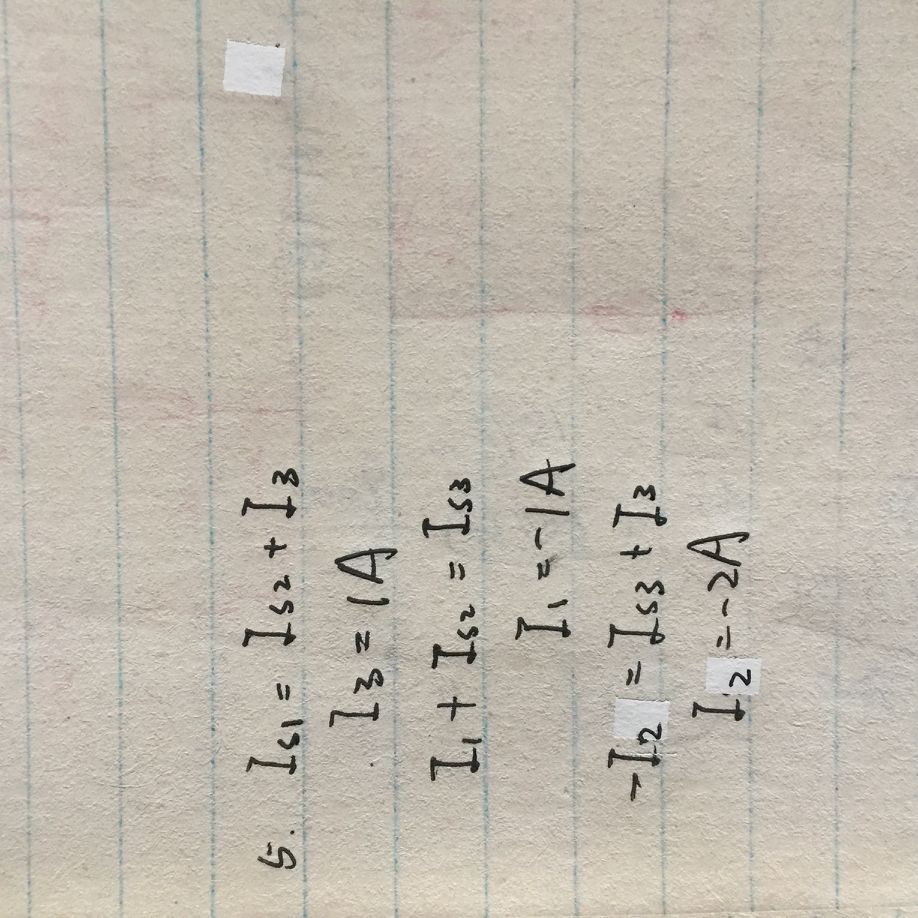 5. Is1 = Is2 + I3
I3 = 1A
I1 + Is2 = Is3
I1 = -1A
-I2 = Is3 + I3
I2 = -2A